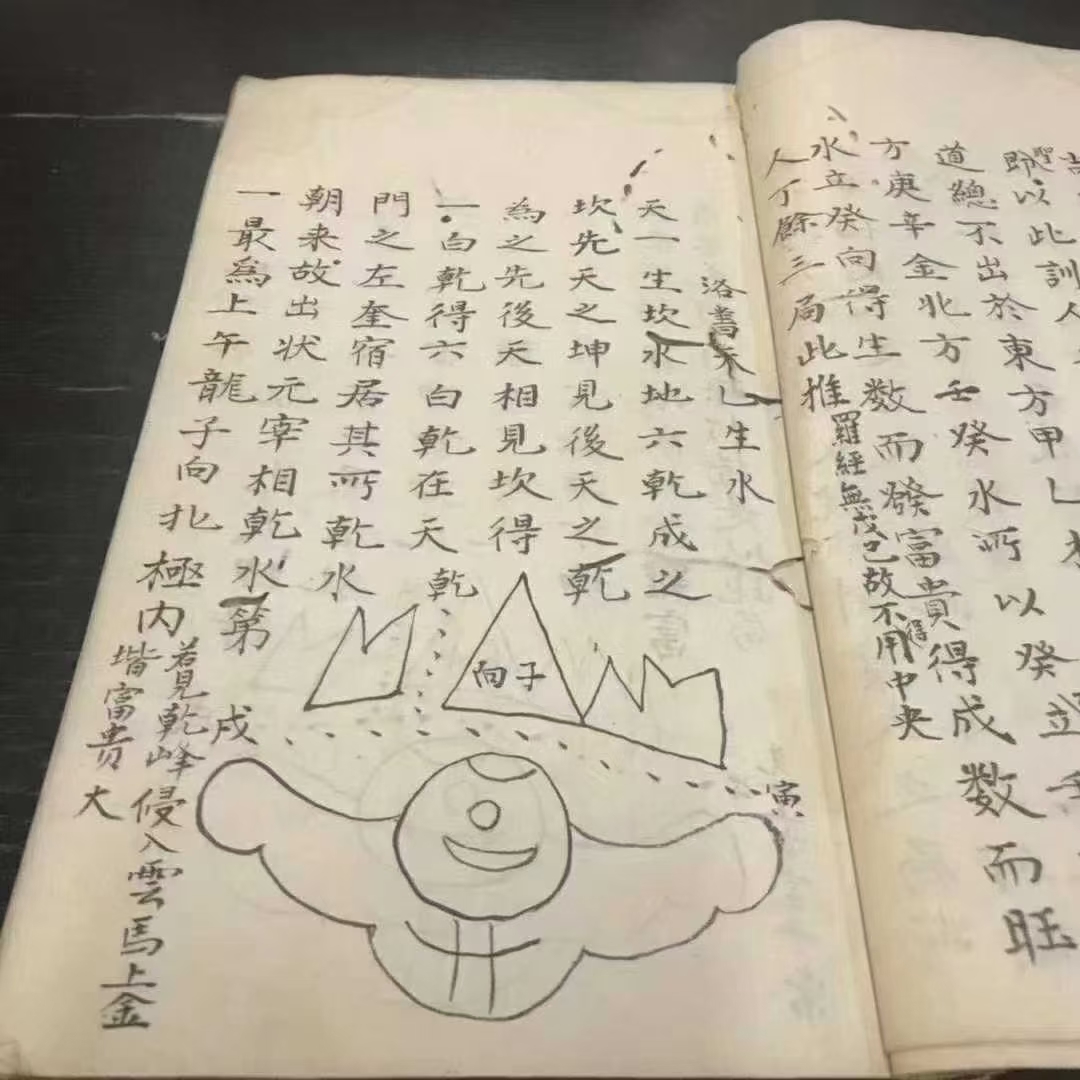 即以此訓人
道總不出於東方甲乙
方庚辛金北方壬癸水所以癸立
水立癸向得生数而發富貴得成数而旺
得
人丁餘三局此推
羅經無戊己故不用中央
洛書天乙生水
天一生坎水地六乾成之
坎先天之坤見後天之乾
為之先後天相見坎得
一白乾得六白乾在天乾
門之左奎宿居其所乾水
朝来故出状元宰相乾水第
一最為上午龍子向北極内
若見乾峰侵入雲馬上金
堦富貴大
向子
戌
寅